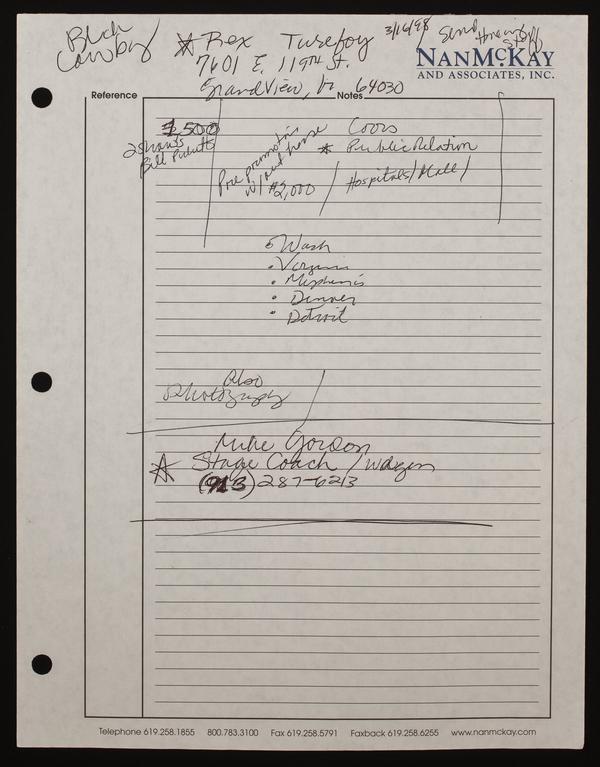 Blck Cowboy
* Rex Turefoy
3/16/98
Send
7601 E. 119TH St.
Grandview, 64030
NANMCKAY
AND ASSOCIATES, INC.
Reference
Notes
1,500
Coors
2 shows
Bill Pickett
* Public Relation
Pore promotion
w/out horse
$2,000
/ Hospitals/Mall/
• Wash
• Virginia
• Memphis
• Dinner
• Detroit
Also
Photography
Mike Gordon
* Stage Coach / Wagon
(913) 287-6213
Telephone 619.258.1855 800.783.3100 Fax 619.258.5791 Faxback 619.258.6255 www.nanmckay.com